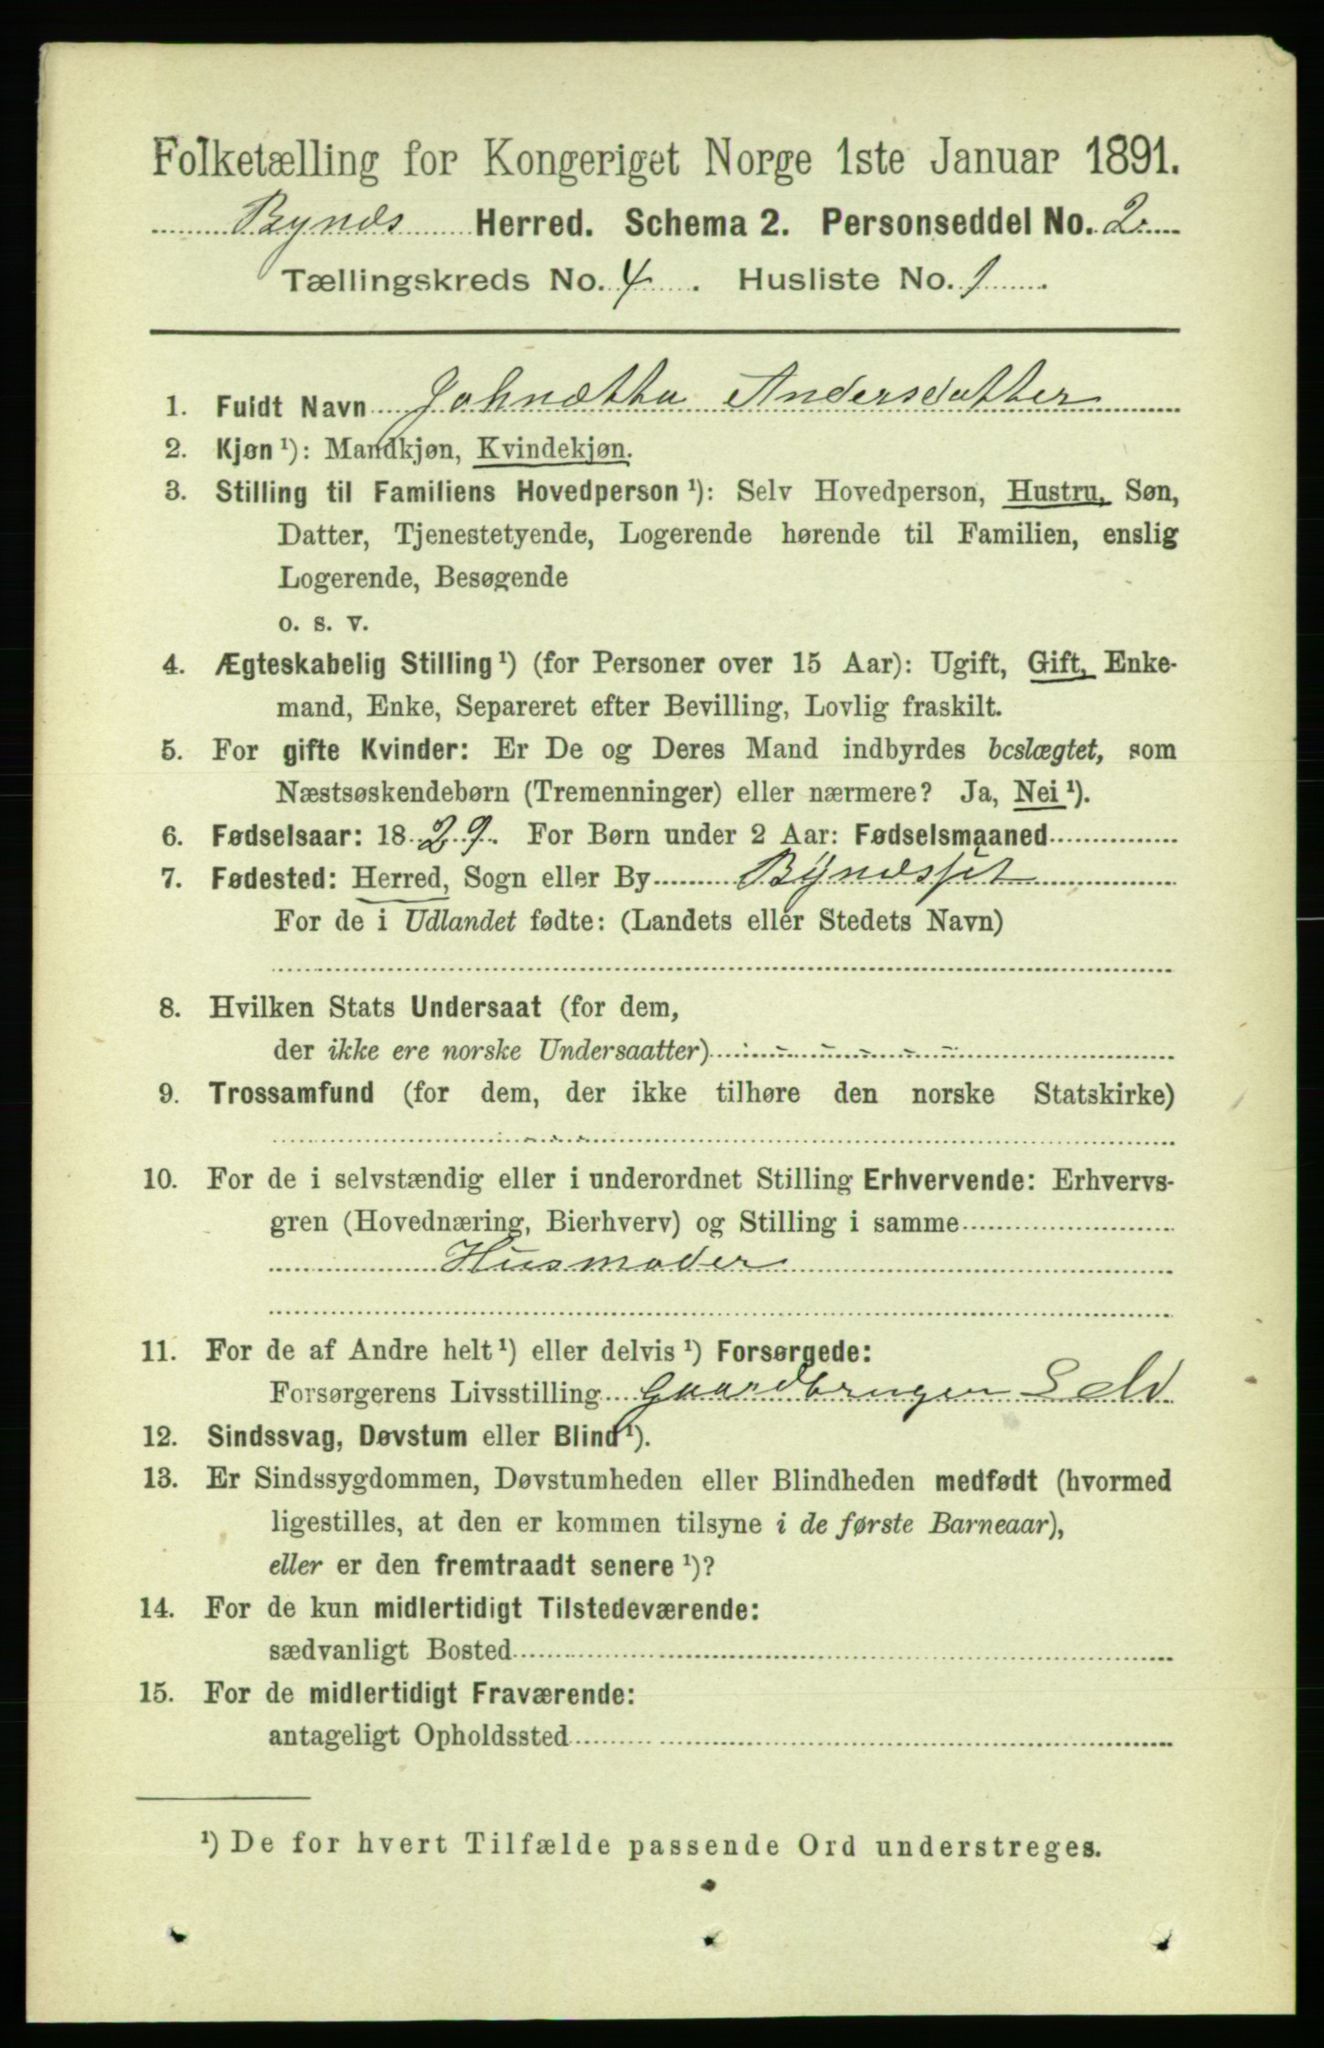 Folketælling for Kongeriget Norge 1ste Januar 1891.
Bynæs Herred. Schema 2. Personseddel No. 2
Tællingskreds No. 4. Husliste No. 1
1. Fuldt Navn Johnætta Andersdatter
2. Kjøn ¹): Mandkjøn, Kvindekjøn.
3. Stilling til Familiens Hovedperson ¹): Selv Hovedperson, Hustru, Søn,
Datter, Tjenestetyende, Logerende hørende til Familien, enslig
Logerende, Besøgende
o. s. v.
4. Ægteskabelig Stilling ¹) (for Personer over 15 Aar): Ugift, Gift, Enke-
mand, Enke, Separeret efter Bevilling, Lovlig fraskilt.
5. For gifte Kvinder: Er De og Deres Mand indbyrdes beslægtet, som
Næstsøskendebørn (Tremenninger) eller nærmere? Ja, Nei ¹).
6. Fødselsaar: 1829. For Børn under 2 Aar: Fødselsmaaned
7. Fødested: Herred, Sogn eller By Bynæsset
For de i Udlandet fødte: (Landets eller Stedets Navn)
8. Hvilken Stats Undersaat (for dem,
der ikke ere norske Undersaatter)
9. Trossamfund (for dem, der ikke tilhøre den norske Statskirke)
10. For de i selvstændig eller i underordnet Stilling Erhvervende: Erhvervs-
gren (Hovednæring, Bierhverv) og Stilling i samme
Husmoder
11. For de af Andre helt ¹) eller delvis ¹) Forsørgede:
Forsørgerens Livsstilling Gaardbruger
12. Sindssvag, Døvstum eller Blind ¹).
13. Er Sindssygdommen, Døvstumheden eller Blindheden medfødt (hvormed
ligestilles, at den er kommen tilsyne i de første Barneaar),
eller er den fremtraadt senere ¹)?
14. For de kun midlertidigt Tilstedeværende:
sædvanligt Bosted
15. For de midlertidigt Fraværende:
antageligt Opholdssted
¹) De for hvert Tilfælde passende Ord understreges.